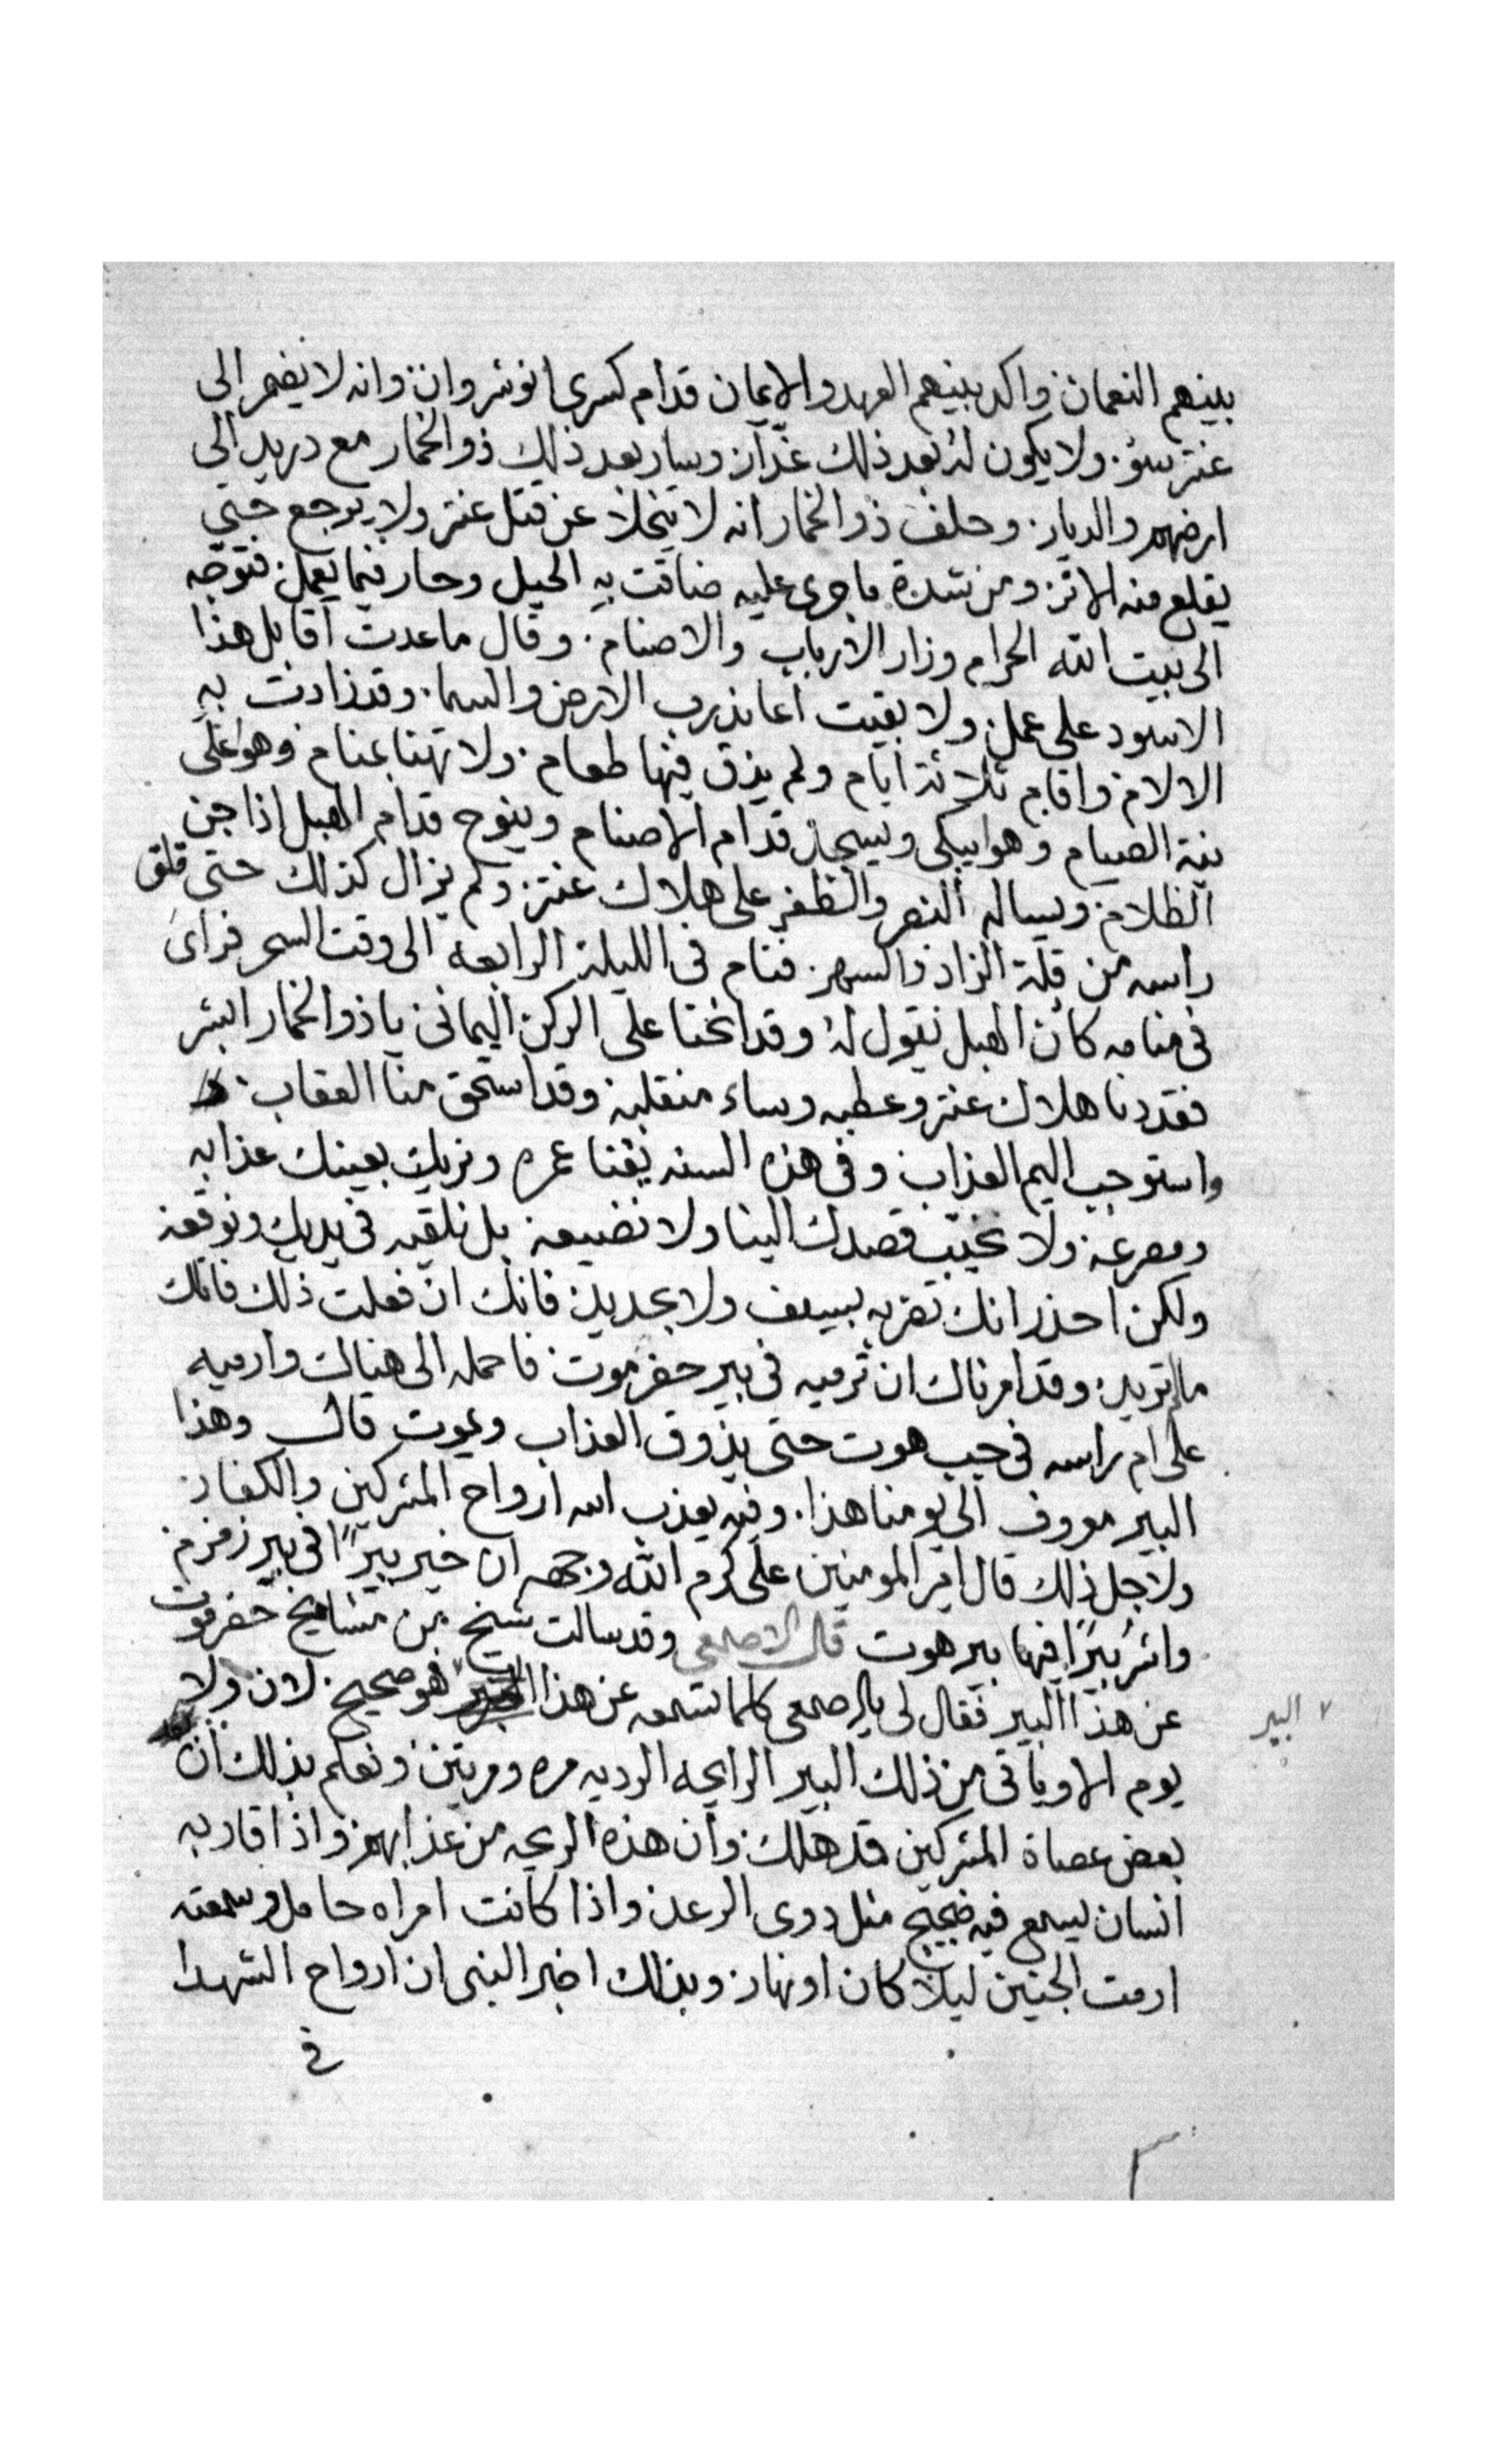 بينهم النعمان واكد بينهم العهد والايمان قدام كسرى انوشروان وانه لا يضمر الى
عنتر سؤ ولا يكون له بعد ذلك غدار وسار بعد ذلك ذو الخمار مع دريد الى
ارضهم والديار وحلف ذو الخمار انه لا يتخلا عن قتل عنتر ولا يرجع حتى
يقلع منه الاثر ومن شدة ما جرى عليه ضاقت به الحيل وحار فيما يعمل فتوجه
الى بيت الله الحرام وزار الارباب والاصنام وقال ما عدت اقابل هذا
الاسود على عمل ولا بقيت اعاند رب الارض والسما وقد زادت به
الالام واقام ثلاثة ايام ولم يذق فيها طعام ولا تهنا بمنام وهو على
نية الصيام وهو ايبكى ويسجد قدام الاصنام وينوح قدام الهبل اذا جن
الظلام ويساله النصر والظفر على هلاك عنتر ولم يزال كذلك حتى قلق
راسه من قلة الزاد والسهر فنام فى الليلة الرابعه الى وقت السحر فراى
فى منامه كان الهبل يقول له وقد انحنا على الركن اليمانى يا ذو الخمار ابشر
فقد دنا هلاك عنتر وعطبه وساء منقلبه وقد استحق منا العقاب
واستوجب اليم العذاب وفى هذه السنه يفنا عمره ونريك بعينك عذابه
ومصرعه ولا نخيب قصدك الينا ولا نضيعه بل نلقيه فى يديك ونوقعه
ولكن احذر انك تضربه بسيف ولا بحديد فانك ان فعلت ذلك فاتك
ما تريد وقد امرناك ان ترميه فى بير حضرموت فاحمله الى هناك وارميه
على ام راسه فى جب هوت حتى يذوق العذاب ويموت قال وهذا
البير معروف الى يومنا هذا وفيه يعذب الله ارواح المشركين والكفار
ولاجل ذلك قال امير المومنين على كرم الله وجهه ان خير بيرًا فى بير زمزم
واشر بيرًا فيها بير هوت قال الاصمعى وقد سالت شيخ من مشايخ حضرموت
عن هذا البير فقال لى يا اصمعى كلما تسمعه عن هذا البير فهو صحيح لان ولا
البير
يوم الا وياتى من ذلك البير الرايحه الرديه مره ومرتين ونعلم بذلك ان
بعض عصاة المشركين قد هلك وان هذه الريحه من عذابهم واذا قاربه
انسان يسمع فيه ضجيج مثل دوى الرعد واذا كانت امراه حامل وسمعته
ارمت الجنين ليلا كان او نهار وبذلك اخبر النبى ان ارواح الشهدا
فى